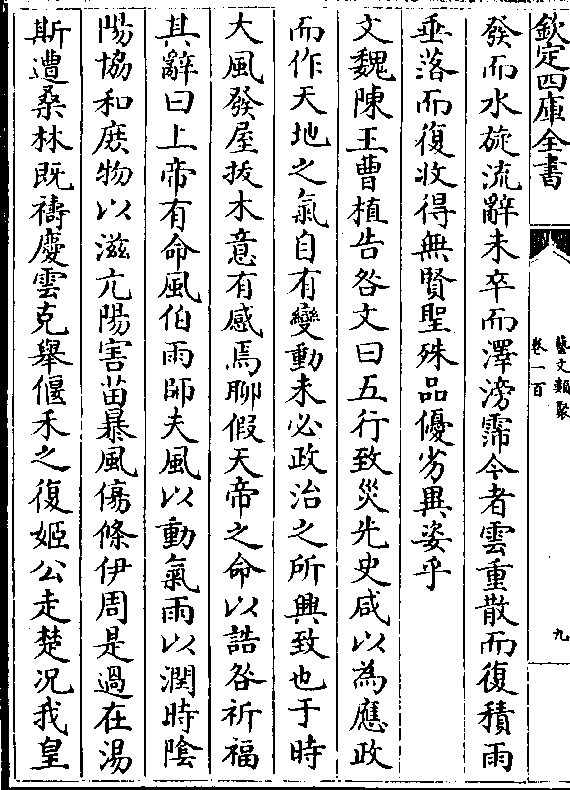 欽定四庫全書
藝文類聚
卷一百
九
發而水旋流辭未卒而澤滂霈今者雲重散而復積雨
垂落而復收得無賢聖殊品優劣異姿乎
文魏陳王曹植告咎文曰五行致災先史咸以為應政
而作天地之氣自有變動未必政治之所興致也于時
大風發屋拔木意有感焉聊假天帝之命以誥咎祈福
其辭曰上帝有命風伯雨師夫風以動氣雨以潤時陰
陽協和庶物以滋亢陽害苗暴風傷條伊周是過在湯
斯遭桑林既禱慶雲克舉偃禾之復姬公走楚况我皇